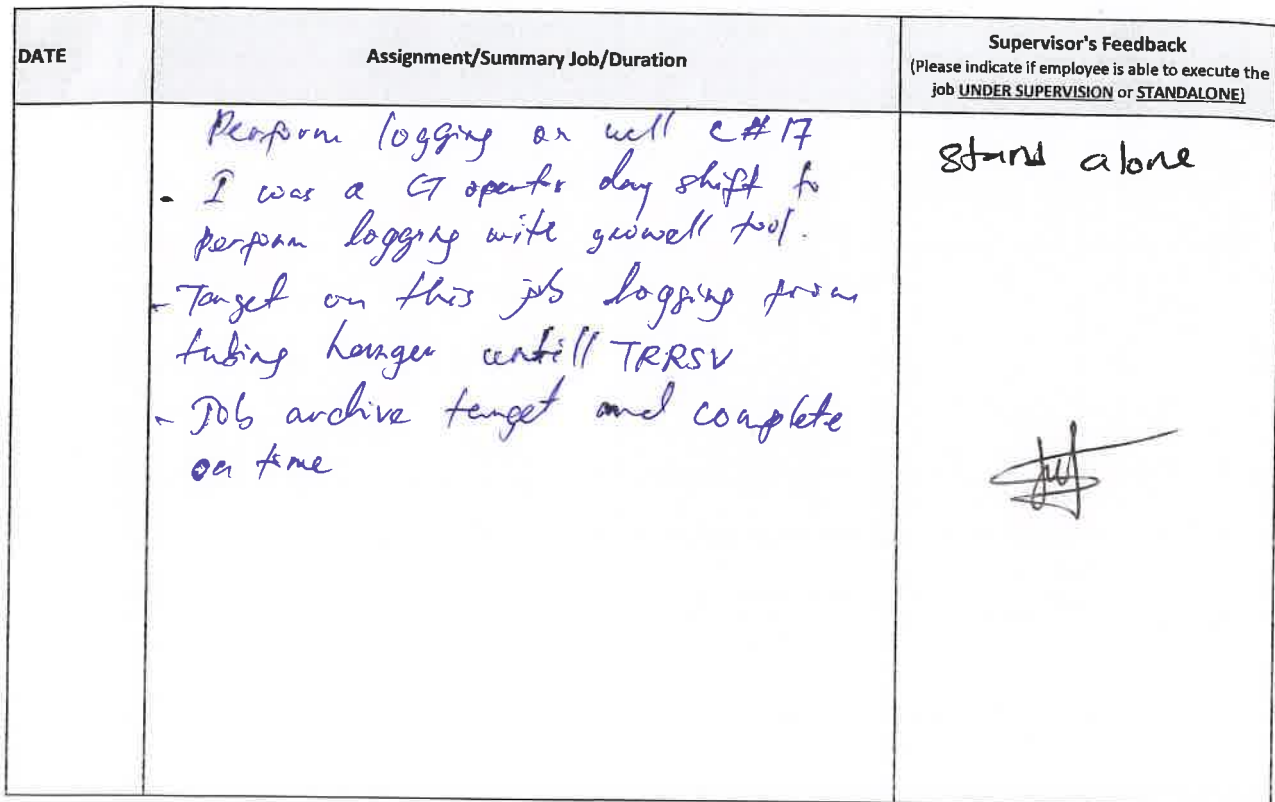 DATE
Assignment/Summary Job/Duration
Supervisor's Feedback
(Please indicate if employee is able to execute the
job UNDER SUPERVISION or STANDALONE)
Perform logging on well C#17
- I was a CT operator day shift to
perform logging with gowell tool.
- Target on this job logging from
tubing hanger untill TRRSV
- Job archive target and complete
on time
stand alone